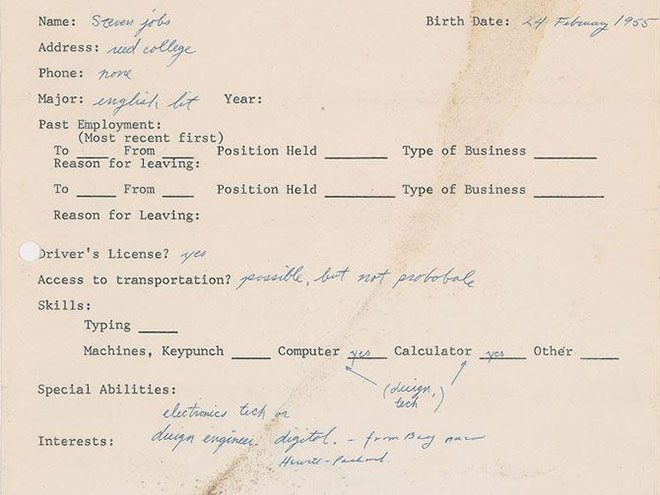 Name: Steven jobs Birth Date: 24 February 1955
Address: reed college
Phone: none
Major: english lit Year:
Past Employment:
(Most recent first)
To ____ From ____ Position Held ________ Type of Business ________
Reason for leaving:
To ____ From ____ Position Held ________ Type of Business ________
Reason for Leaving:
Driver's License? yes
Access to transportation? possible, but not probobale
Skills:
Typing ____
Machines, Keypunch ____ Computer yes Calculator yes Other ____
(design,
tech)
Special Abilities:
electronics tech or
Interests: design engineer digital. - from Bay near
Hewitt-Packard.